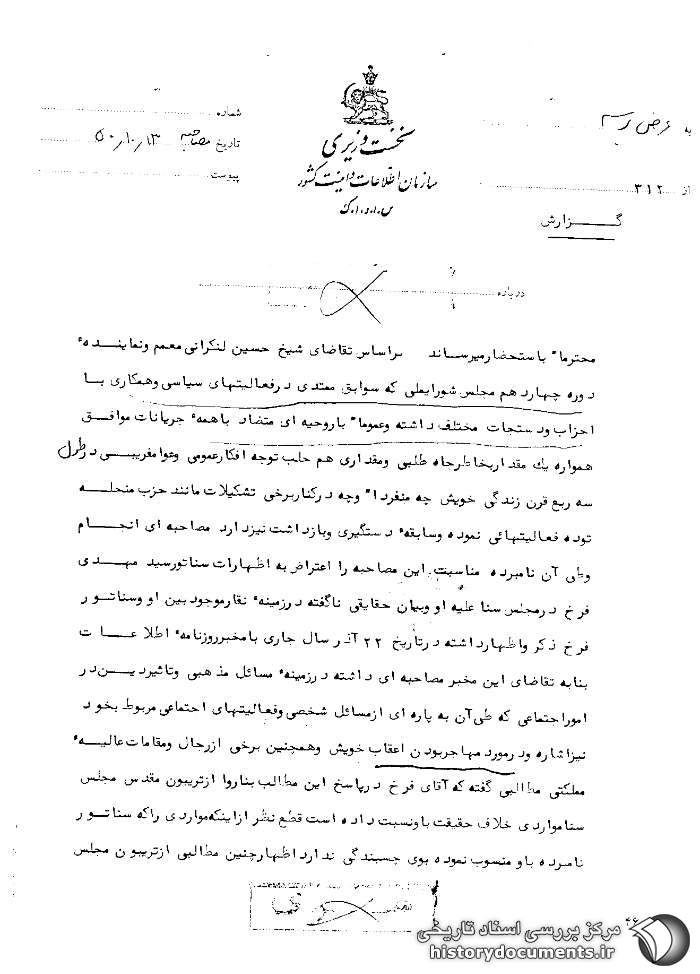 به عرض رسید
شماره
نخست وزیری
تاریخ مصاحبه ۵۰٫۱۰٫۱۳
سازمان اطلاعات و امنیت کشور
پیوست
از ۳۱۲
س.ا.و.ا.ک
گــزارش
درباره
محترما" باستحضار میرساند براساس تقاضای شیخ حسین لنکرانی معمم ونماینده ء
دوره چهارد هم مجلس شورایملی که سوابق ممتدی درفعالیتهای سیاسی وهمکاری با
احزاب ود ستجات مختلف داشته وعموما" باروحیه ای متضاد باهمه ء جریانات موافق
همواره یك مقد اربخاطرجاه طلبی ومقداری هم جلب توجه افکارعمومی وعوامفریبی درطول
سه ربع قرن زندگی خویش چه منفردا" وچه درکناربرخی تشکیلات مانند حزب منحله
توده فعالیتهائی نموده وسابقه ء دستگیری وبازداشت نیزدارد مصاحبه ای انجام
وطی آن نامبرده مناسبت این مصاحبه را اعتراض به اظهارات سناتورسید مهدی
فرخ درمجلس سنا علیه او وبیان حقایقی ناگفته درزمینه ء نقارموجود بین او وسناتور
فرخ ذکر واظهارداشته درتاریخ ۲۲ آذر سال جاری بامخبرروزنامه ء اطلاعات
بنابه تقاضای این مخبر مصاحبه ای داشته درزمینه ء مسائل مذهبی وتاثیردین در
اموراجتماعی که طی آن به پاره ای ازمسائل شخصی وفعالیتهای اجتماعی مربوط بخود
نیزاشاره ودرمورد مهاجربودن اعقاب خویش وهمچنین برخی ازرجال ومقامات عالیه ء
مملکتی مطالبی گفته که آقای فرخ درپاسخ این مطالب بناروا ازتریبون مقدس مجلس
سنامواردی خلاف حقیقت باونسبت داده است قطع نظر ازاینکه مواردی راکه سناتور
نامبرده باو منسوب نموده بوی چسبندگی ندارد اظهارچنین مطالبی ازتریبون مجلس
مرکز بررسی اسناد تاریخی
historydocuments.ir